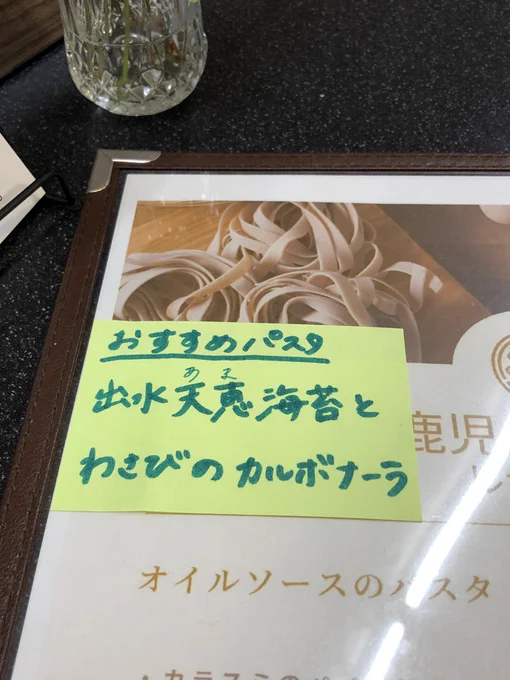 おすすめパスタ
あま
出水天恵海苔と
わさびのカルボナーラ
鹿児
オイルソースのパスタ